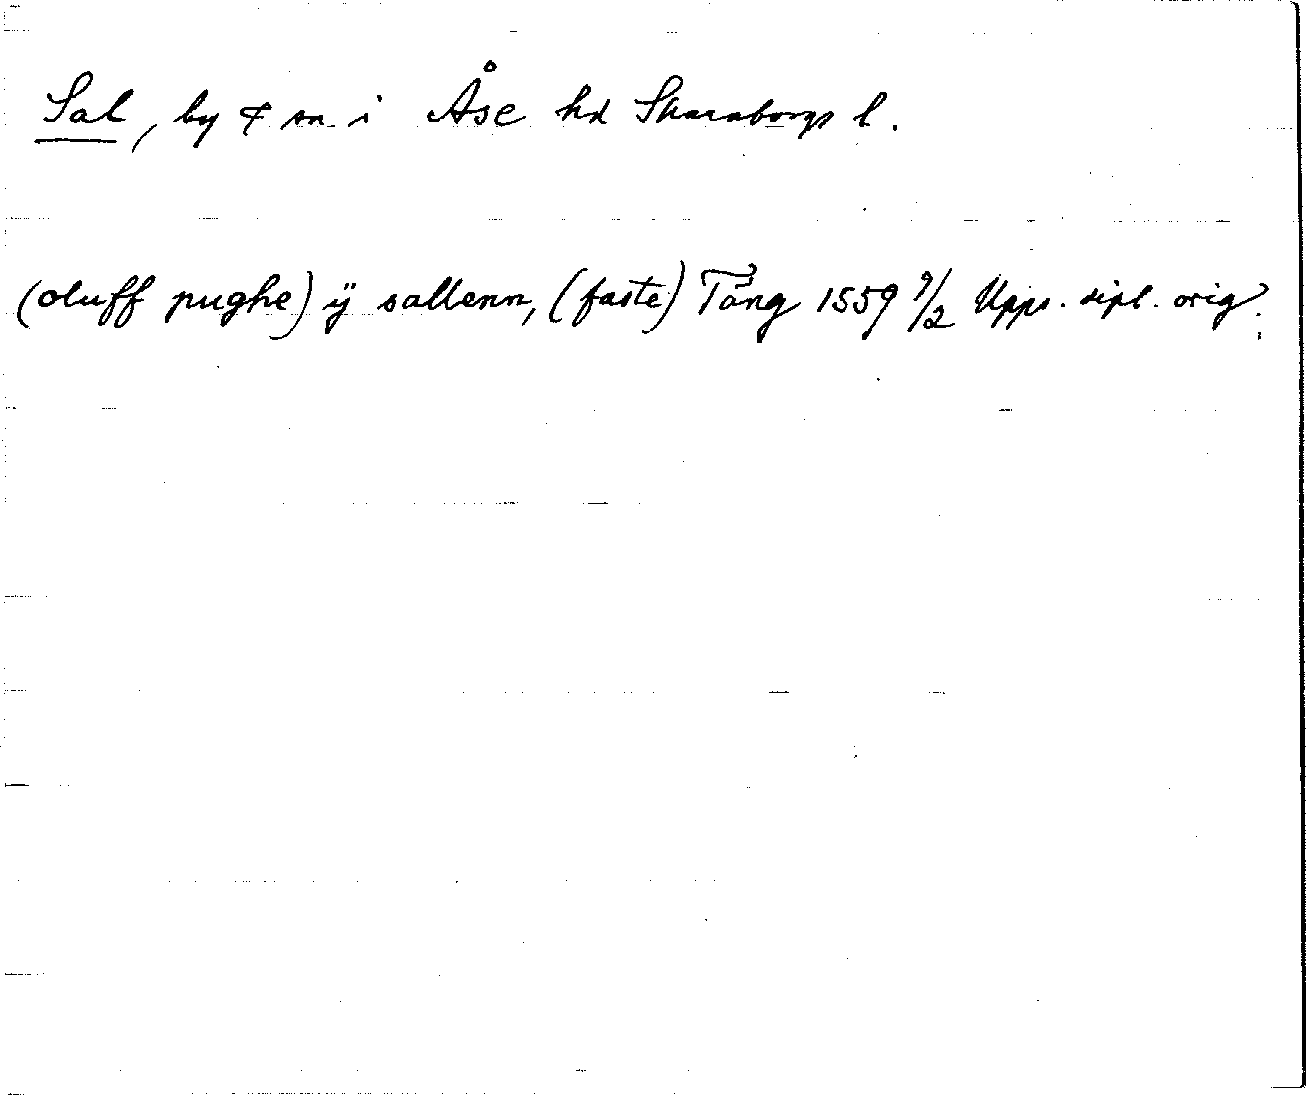 Sal, by & sn i Åse hd Skaraborgs l.
(oluff pughe) ÿ sallenn, (faste) Tång 1559 9/2 Upps. dipl. orig.